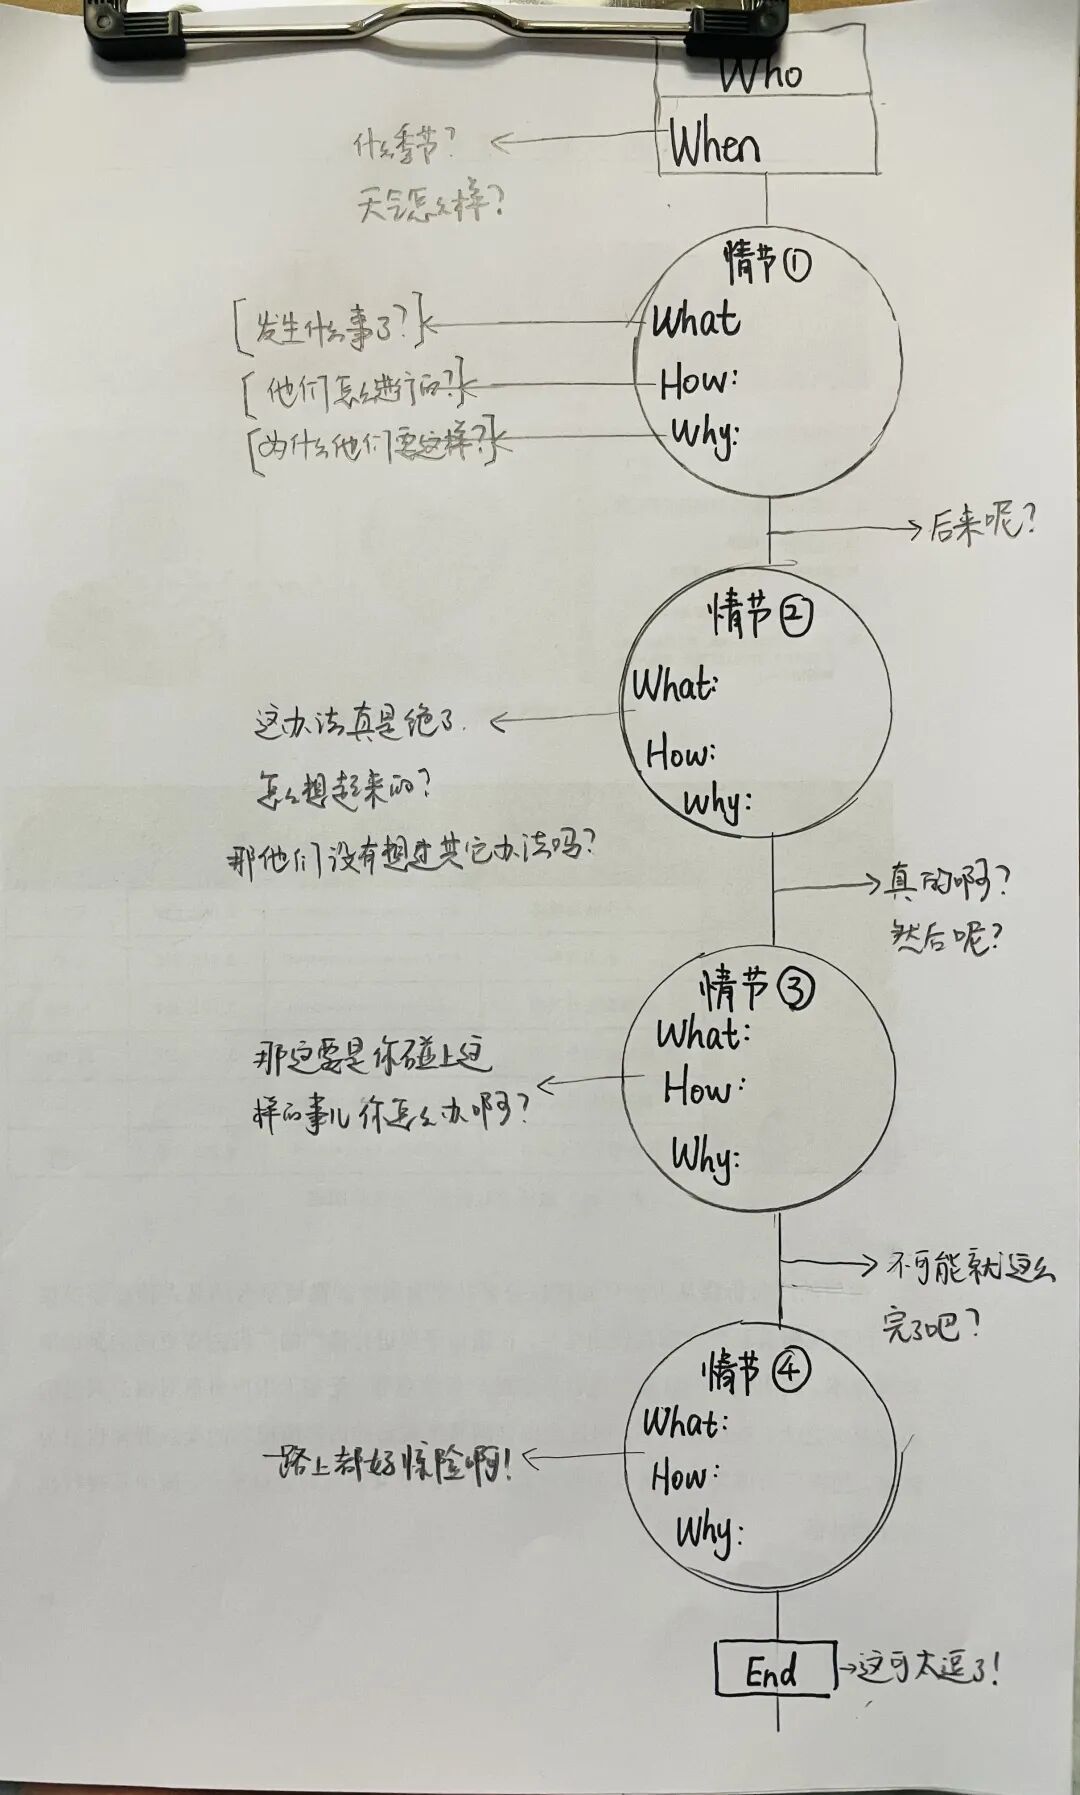 Who
When
什么季节?
天气怎么样?
情节①
What
[发生什么事了?]
How:
[他们怎么进行的?]
Why:
[为什么他们要这样?]
后来呢?
情节②
What:
这办法真是绝了.
How:
怎么想起来的?
Why:
那他们没有想过其它办法吗?
真的啊?
然后呢?
情节③
What:
那这要是你碰上这
How:
样的事儿你怎么办啊?
Why:
不可能就这么
完了吧?
情节④
What:
一路上都好惊险啊!
How:
Why:
End
这可太逗了!